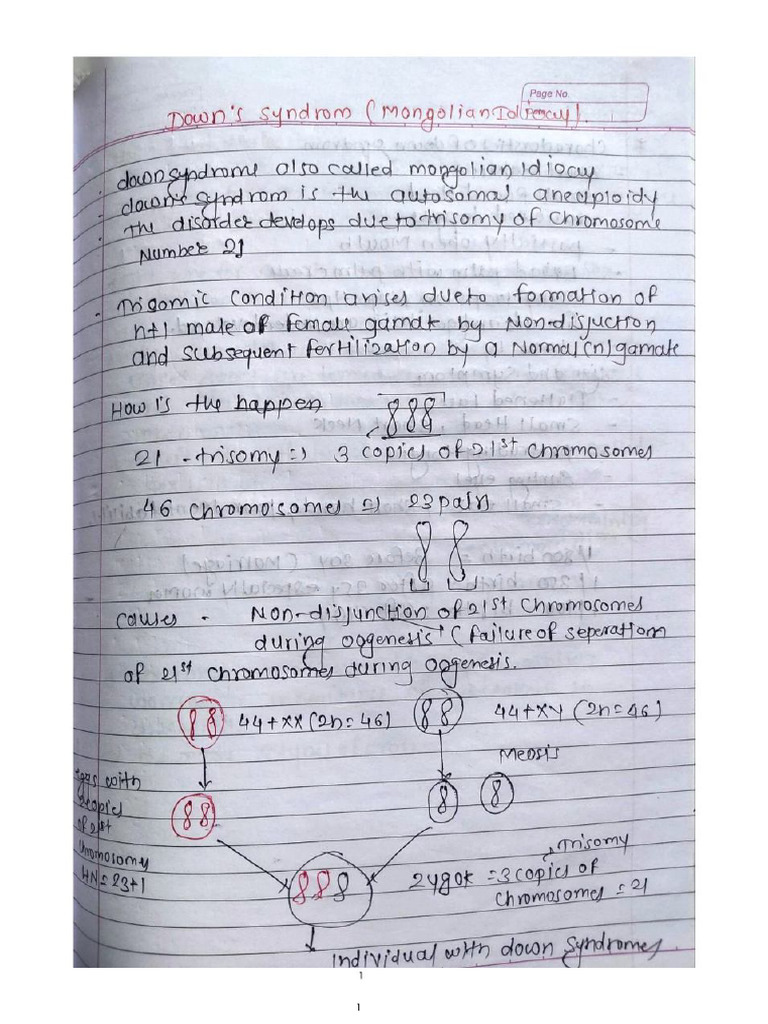 Page No.
Down's Syndrom (Mongolian Idiocy).
down syndrome also called mongolian Idiocy
down's syndrom is the autosomal aneuploidy
The disorder develops due to trisomy of Chromosome
Number 21
Trisomic Condition arises due to formation of
n+1 male of female gamat by Non-disjuction
and subsequent fertilization by a Normal (n) gamate
How is the happen
21 - trisomy => 3 copies of 21st Chromosomes
46 Chromosomes => 23 pairs
Causes - Non-disjunction of 21st Chromosomes
during oogenesis (failure of seperation
of 21st chromosomes during oogenesis.
44+xx (2n=46) 44+xy (2n=46)
Meosis
with
copies
of 21st
Chromosomy
HN=23+1
Trisomy
Zygot = 3 copies of
Chromosomes = 21
individual with down syndromes.
1
1